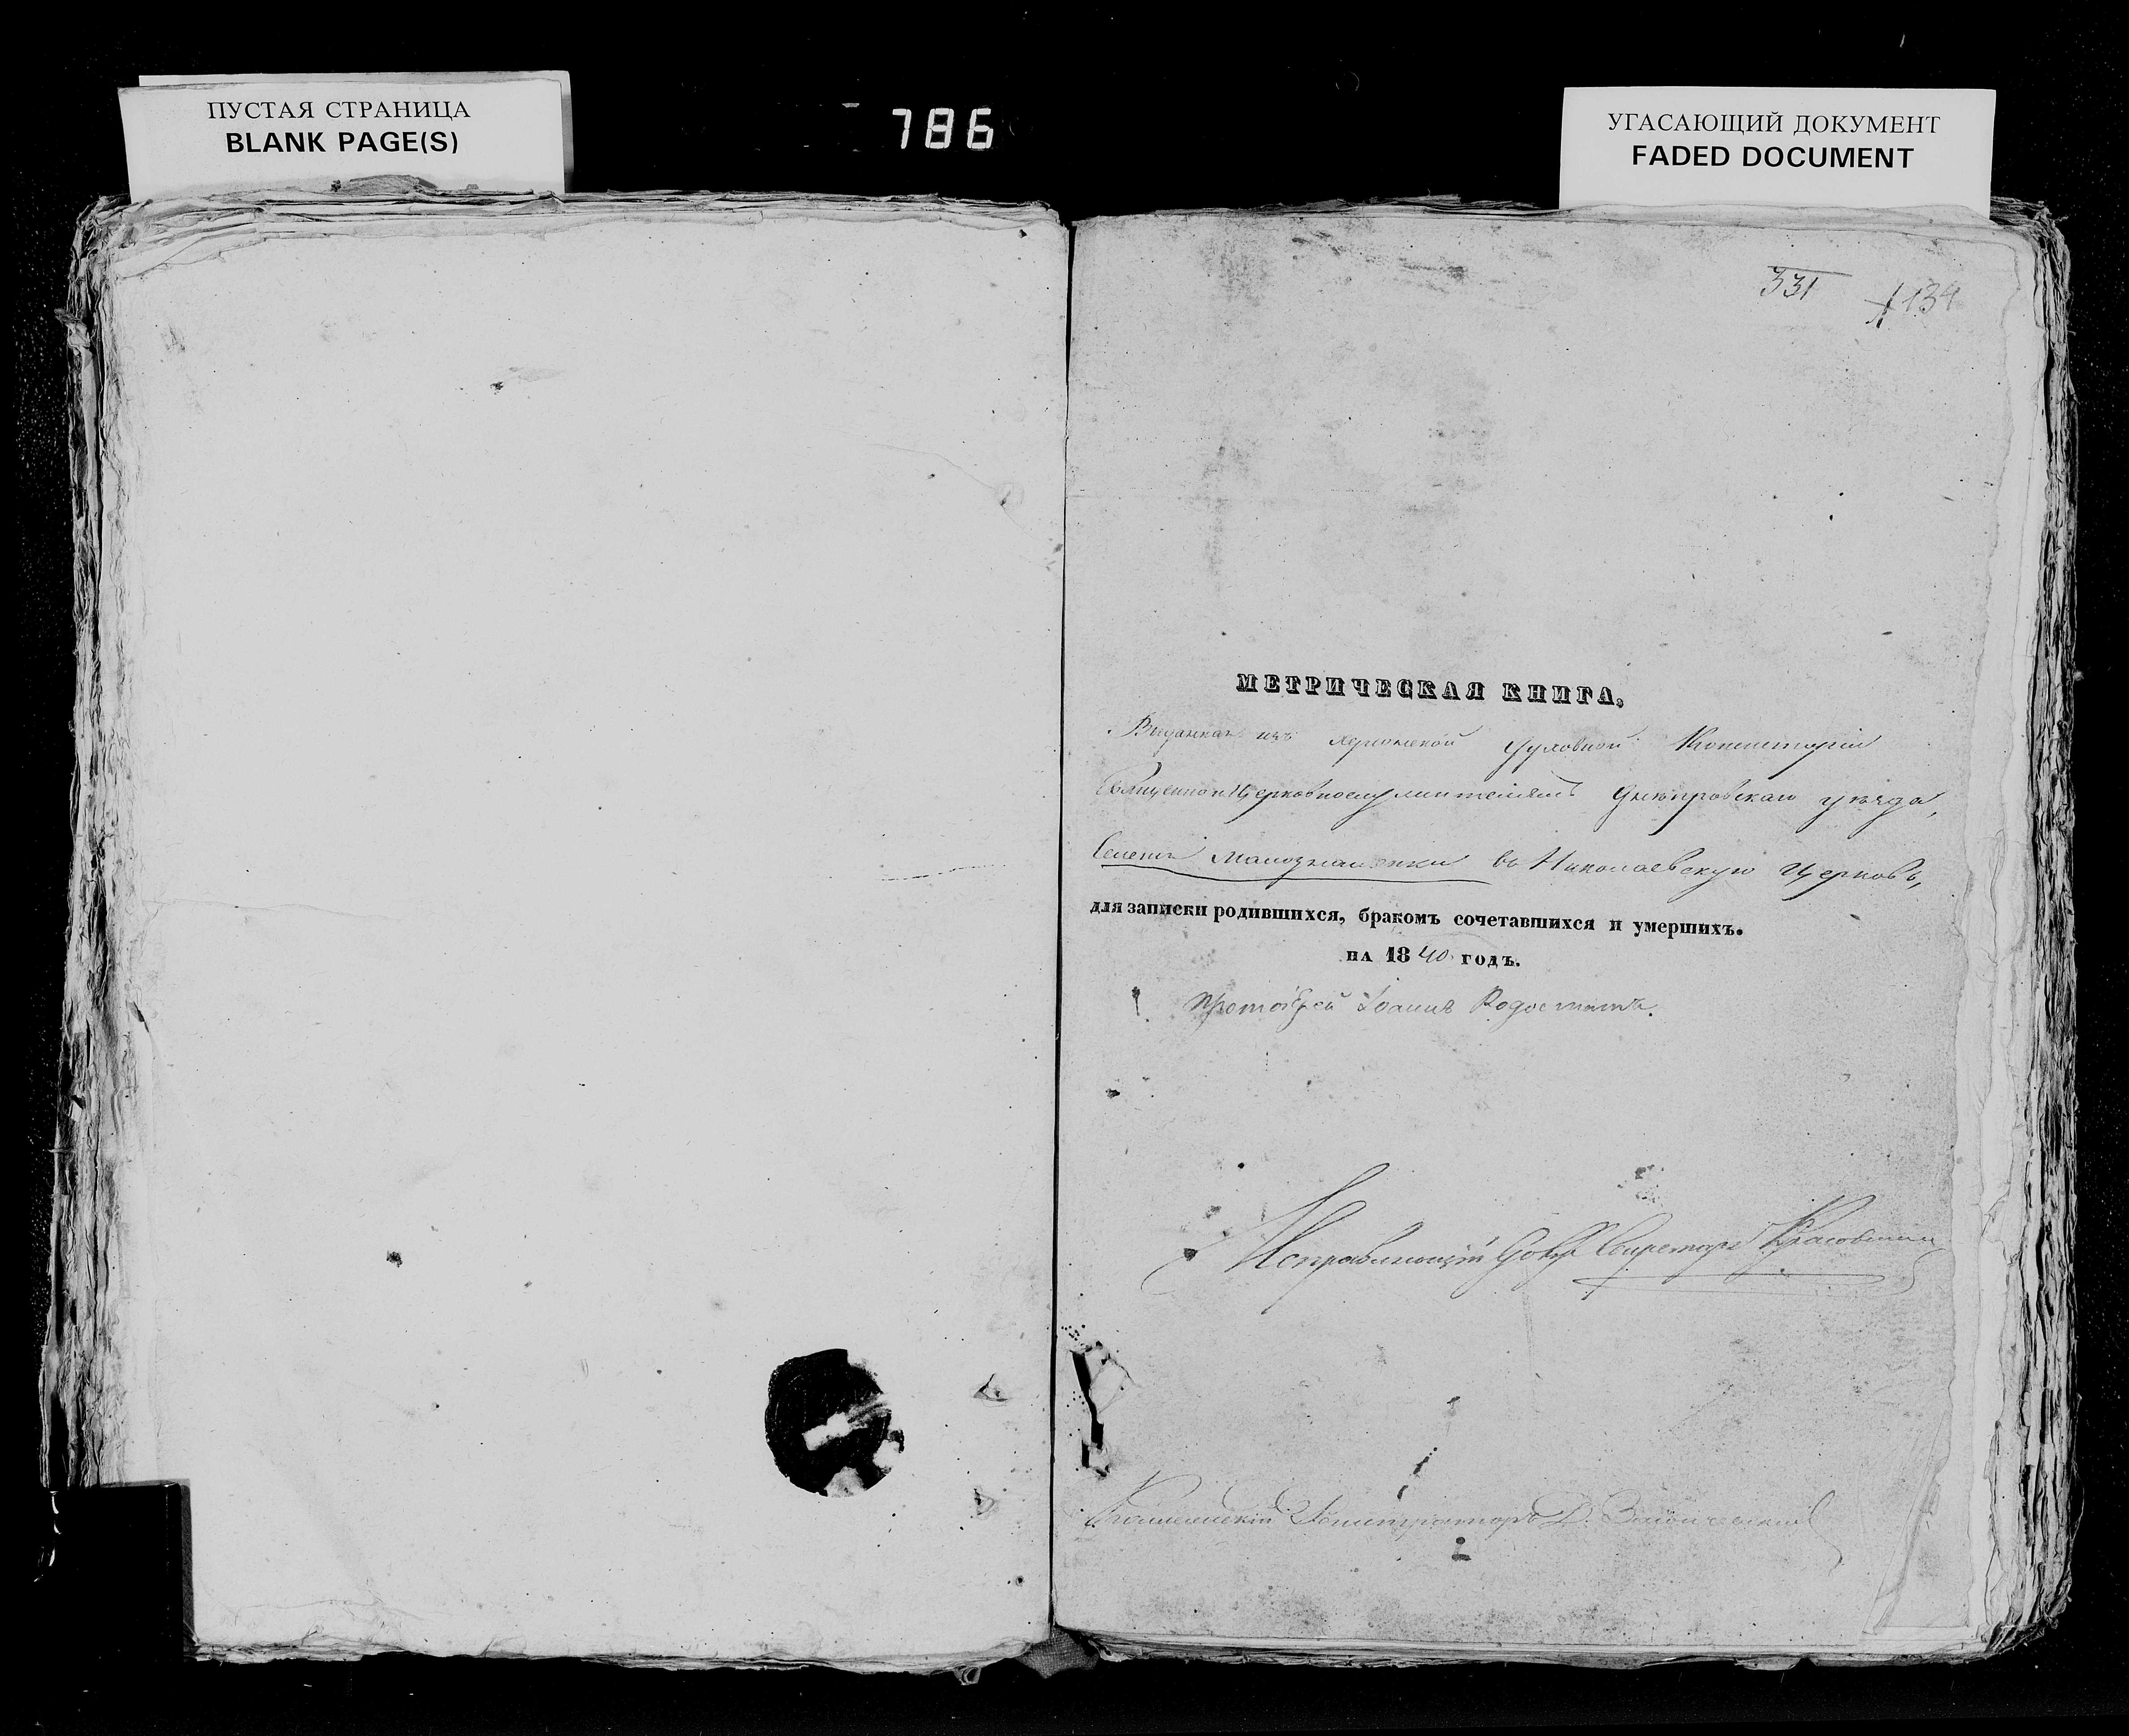 ПУСТАЯ СТРАНИЦА
BLANK PAGE(S)
786
УГАСАЮЩИЙ ДОКУМЕНТ
FADED DOCUMENT
331
134
МЕТРИЧЕСКАЯ КНИГА,
Выданная изъ Херсонской Духовной Консисторіи
Священноицерковнослужителямъ Днѣпровскаго уѣзда,
Селенія Малознаменки въ Николаевскую Церковь,
для записки родившихся, бракомъ сочетавшихся и умершихъ.
НА 1840 ГОДЪ.
Протоіерей Іоаннъ Родостатъ.
Исправляющій Секретаря
Регистраторъ